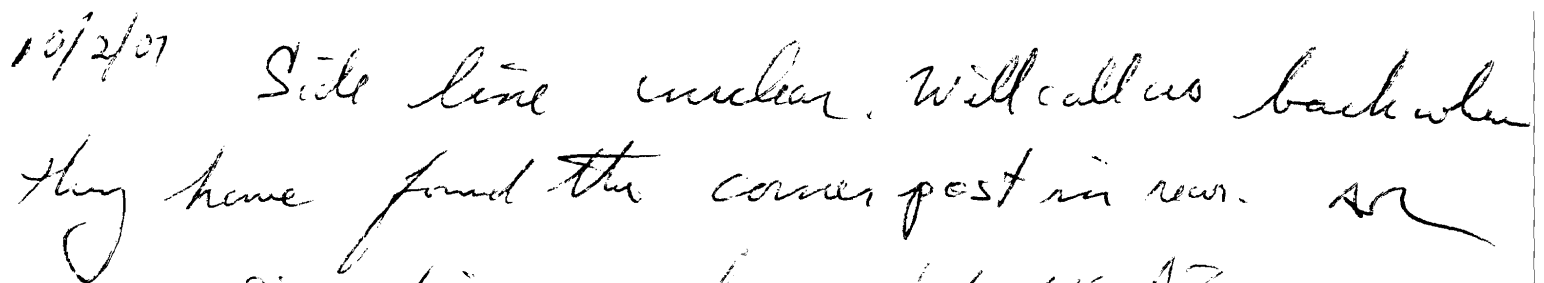 10/2/07 Side line unclear. Will call us back when
they have found the corner post in rear.